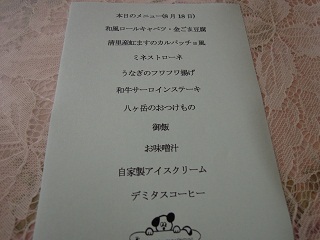 本日のメニュー(8月18日)
和風ロールキャベツ・金ごま豆腐
清里産虹ますのカルパッチョ風
ミネストローネ
うなぎのフワフワ揚げ
和牛サーロインステーキ
八ヶ岳のおつけもの
御飯
お味噌汁
自家製アイスクリーム
デミタスコーヒー